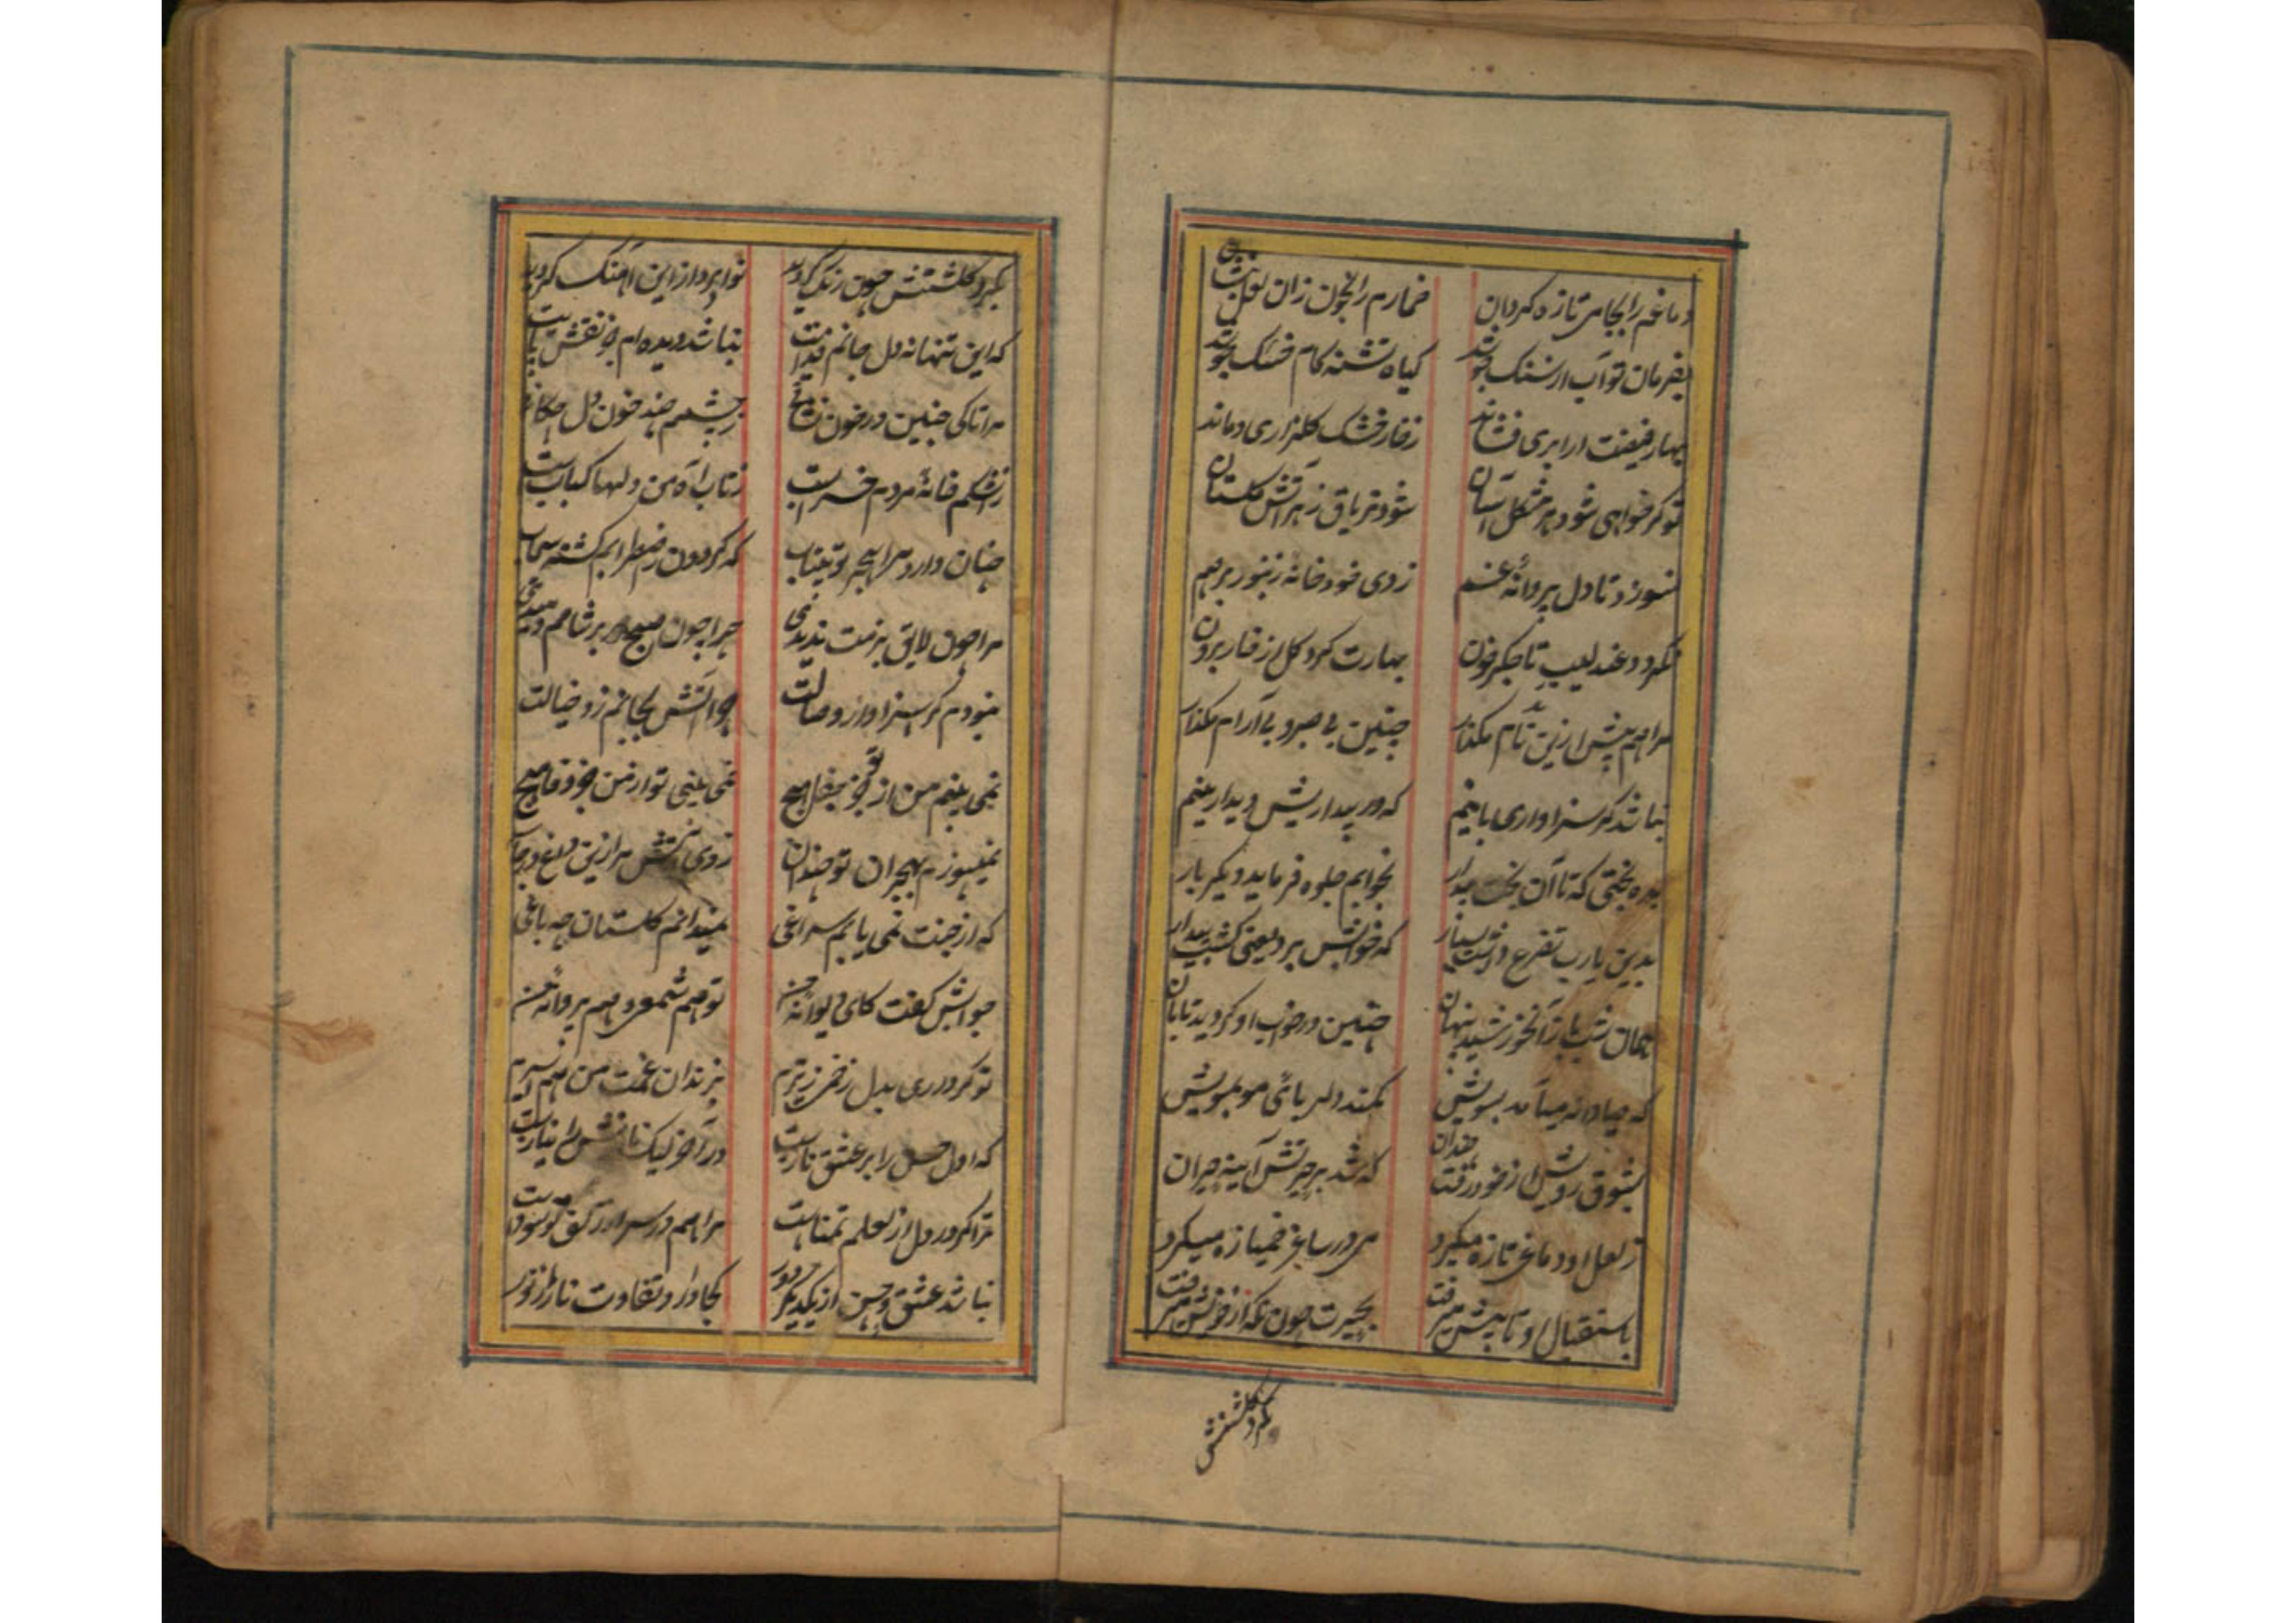 دماغم را بجامی تازه گردان خمارم را بخون زان لعل
بفرمان تو آب از سنگ جوشد گیاه تشنه کام خشک
بهار فیضت ار ابری فشاند ز خار خشک گلزاری دماند
تو گر خواهی شود هر مشکل آسان شود تریاق زهر آتش گلستان
نسوزد تا دل پروانهٔ غم زدی خود خانهٔ زنبور برهم
نگردد عندلیب تا جگر خون بهارت کرد گل از خار بیرون
مرا هم پیش ازین ناکام مگذار چنین بی صبر و بی آرام مگذار
نباشد گر سزاواری باینم که در بیداریش دیدار بینم
بده بختی که تا آن بخت بیدار بخوابم جلوه فرماید دگر بار
بدین یارب تضرع داشت بسیار که خوابش برد یعنی گشت بیدار
همان شب باز آن خورشید پنهان چنین در خواب او گردید تابان
که صیادانه میآمد بسویش کمند دلربائی مو بمویش
بشوق رویش از خود رفت چندان که شد بر حیرتش آیینه حیران
ز لعل او دماغی تازه میکرد می در ساغر خمیازه میکرد
باستقبال او تا پیش میرفت بحیرت چون نگه از خویش میرفت
بگرد گلشنش
بگرد گلشنش چون رنگ گردید نواپرداز این آهنگ گردید
که این تنها نه دل جانم فدایت نباشد دیده ام جز نقش پایت
مرا تا کی چنین در خون نشانی ز چشمم چند خون دل چکانی
ز اشکم خانهٔ مردم خرابست ز تاب آه من دلها کبابست
چنان دارد مرا هجر تو بیتاب که گردون ز اضطرابم گشته سیماب
مرا چون لایق بزمت ندیدی چرا چون صبح بر شامم دمیدی
نبودم گر سزاوار وصالت چو آتش بجانم زد خیالت
نمی بینم من از تو جز تغافل هیچ نمی بینی تو از من جز وفا هیچ
نمیسوزم بهجران تو چندان زدی آتش مرا زین داغ در جان
که از جنت نمی یابم سراغی نمیدانم گلستان چه باغی
جوابش گفت کای دیوانهٔ من تو هم شمعی و هم پروانهٔ من
تو گر داری بدل زخمی ز تیرم بزندان غمت من هم اسیرم
که اول حسن را بر عشق نازست در آخر لیک نازش را نیازست
ترا گر در دل از لعلم تمناست مرا هم در سر از
نباشد عشق و حسن از یکدیگر دور کجا دارد تفاوت نار از نور